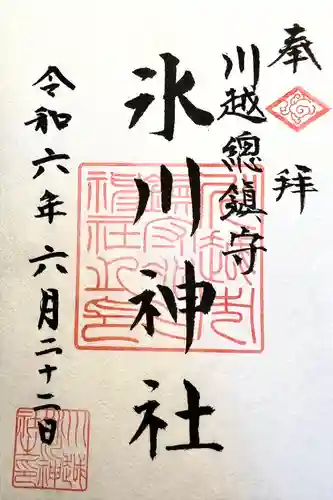 奉拝
川越總鎮守
氷川神社
令和六年六月二十二日